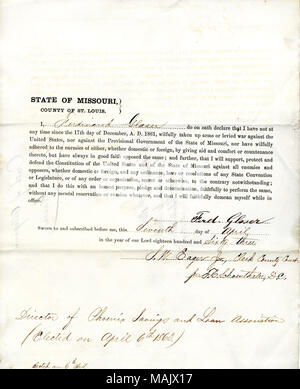 STATE OF MISSOURI,
COUNTY OF ST. LOUIS.
I, Ferdinand Glaser do on oath declare that I have not at
any time since the 17th day of December, A. D. 1861, wilfully taken up arms or levied war against the
United States, nor against the Provisional Government of the State of Missouri, nor have wilfully
adhered to the enemies of either, whether domestic or foreign, by giving aid and comfort or countenance
thereto, but have always in good faith opposed the same; and further, that I will support, protect and
defend the Constitution of the United States and of the State of Missouri against all enemies and
opposers, whether domestic or foreign, any ordinance, law or resolutions of any State Convention
or Legislature, or of any order or organization, secret or otherwise, to the contrary notwithstanding;
and that I do this with an honest purpose, pledge and determination, faithfully to perform the same,
without any mental reservation or evasion whatever, and that I will demean myself loyally while in
office.
Fred. Glaser
Sworn to and subscribed before me, this Seventh day of April
in the year of our Lord eighteen hundred and Sixty three
Clerk County Court
Director of Phoenix Savings and Loan Association
(Elected on April 6th 1863)
alamy
MAJX17